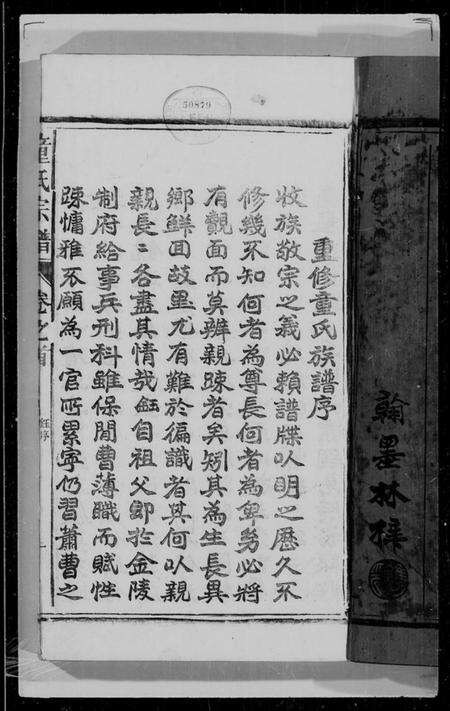 翰墨林梓
50879
重修童氏族譜序
收族敬宗之義必賴譜牒以明之歷久不
修幾不知何者為尊長何者為卑幼必將
有覿面而莫辨親疎者矣矧其為生長異
鄉鮮回故里尤有難於徧識者其何以親
親長〻各盡其情哉鈺自祖父即於金陵
制府給事兵刑科雖保閒曹薄職而賦性
疎慵雅不願為一官所累字仍習蕭曹之
童氏宗譜 卷之首